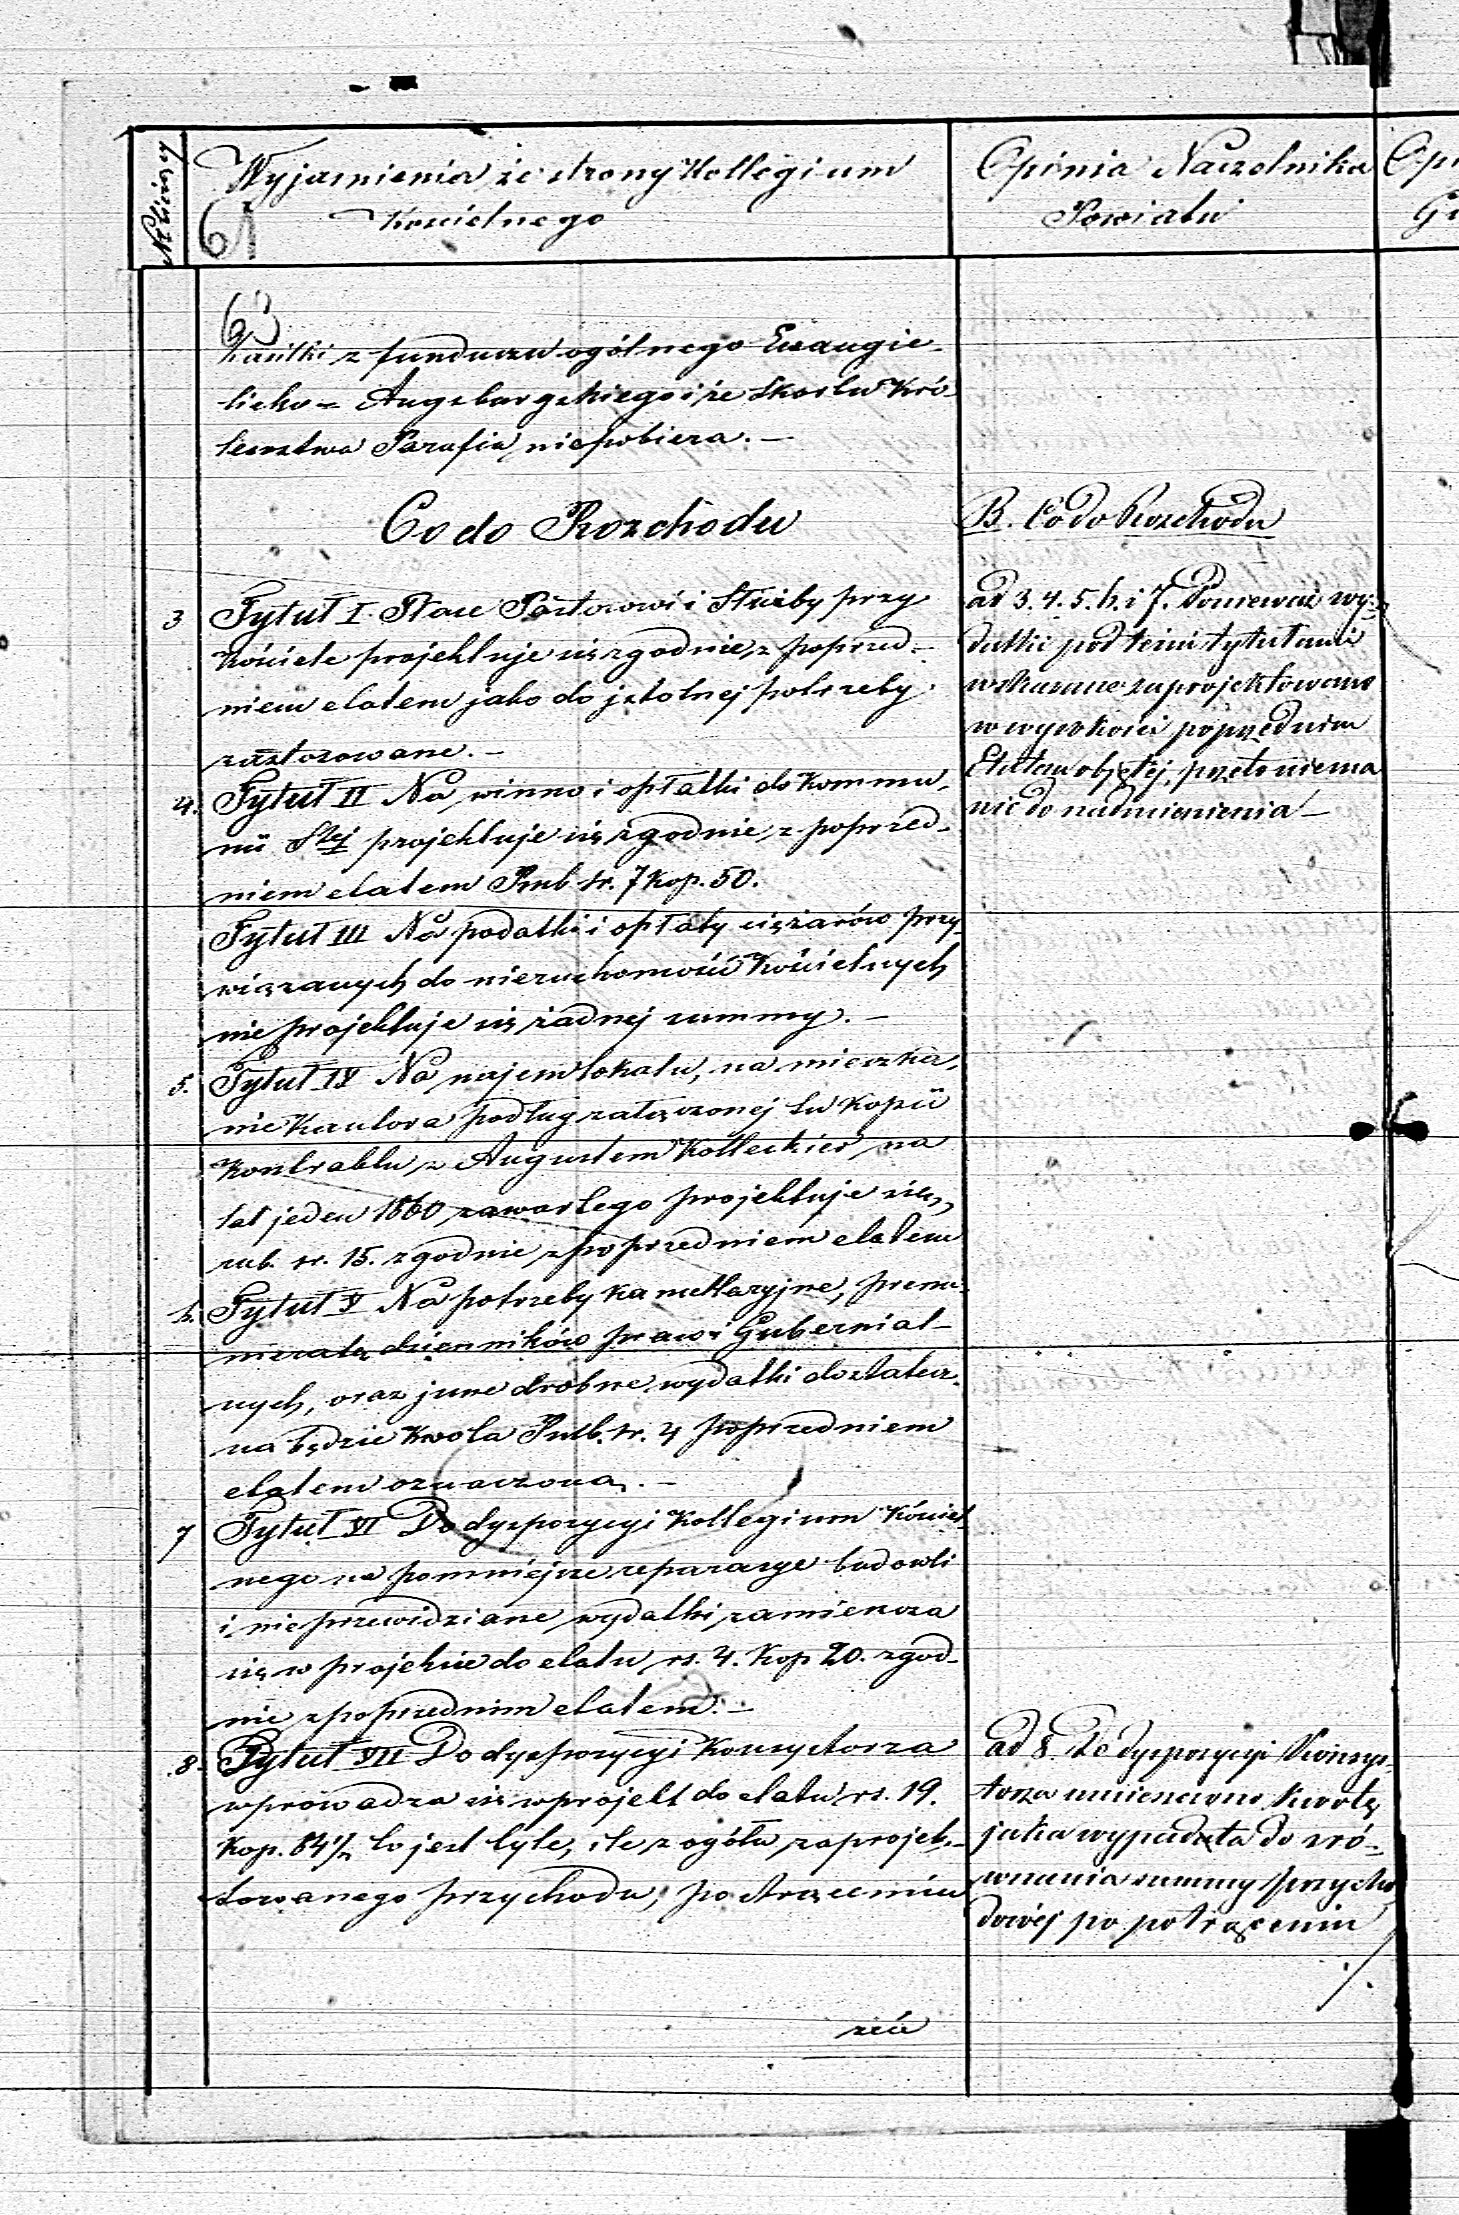 № bieżący
Wyjaśnienia ze strony Kollegium
Kościelnego
61
Opinia Naczelnika
Powiatu
Opi
Gu
63
Zasiłki z funduszu ogólnego Ewangie-
licko = Augsburgskiego i ze Skarbu Kró-
lewstwa Parafia niepobiera. —
Co do Rozchodu
3 Tytuł I. Płace Pastorowi i Służby przy
Kościele projektuje się zgodnie z poprzed-
niem etatem jako do istotnej potrzeby
zastosowane. —
4. Tytuł II Na winno i opłatki do Kommu-
nii Stej projektuje się zgodnie z poprzed-
niem etatem Rub. sr. 7 Kop. 50.
Tytuł III Na podatki i opłaty ciężarów przy-
wiązanych do nieruchomości Kościelnych
nie projektuje się żadnej summy. —
5. Tytuł IV Na najem lokalu, na mieszka-
nie Kantora podług załączonej tu Kopii
Kontraktu z Augustem na
lat jeden 1860 zawartego projektuje się
rub. sr. 15. zgodnie z poprzedniem etatem
6. Tytuł V Na potrzeby kancellaryjne, prenu-
meratę dzienników praw i Gubernial-
nych, oraz inne drobne wydatki dostatecz-
na będzie Kwota Rub. sr. 4 poprzedniem
etatem oznaczona. —
7 Tytuł VI Do dyspozycyi Kollegium Kościel-
nego na pomniejsze reparacye budowli
i nieprzewidziane wydatki zamieszcza
się w projekcie do etatu rs. 4. Kop 20. zgod-
nie z poprzednim etatem. —
8. Tytuł VII Do dyspozycyi Konsystorza
wprowadza się w projekt do etatu rs. 19.
Kop. 84½ to jest tyle, ile z ogółu zaprojek-
towanego przychodu, po strąceniu
B. Co do Rozchodu
ad 3. 4. 5. 6. i 7. Ponieważ wy-
datki pod temi tytułami
wskazane zaprojektowano
w wysokości poprzednim
Etatem objętej, przeto niema
nic do nadmienienia —
ad 8. Do dyspozycyi Konsys-
torza umieszczono Kwotę
jaka wypadała do zró-
wnania summy przycho
dowéj po potrąceniu
./.